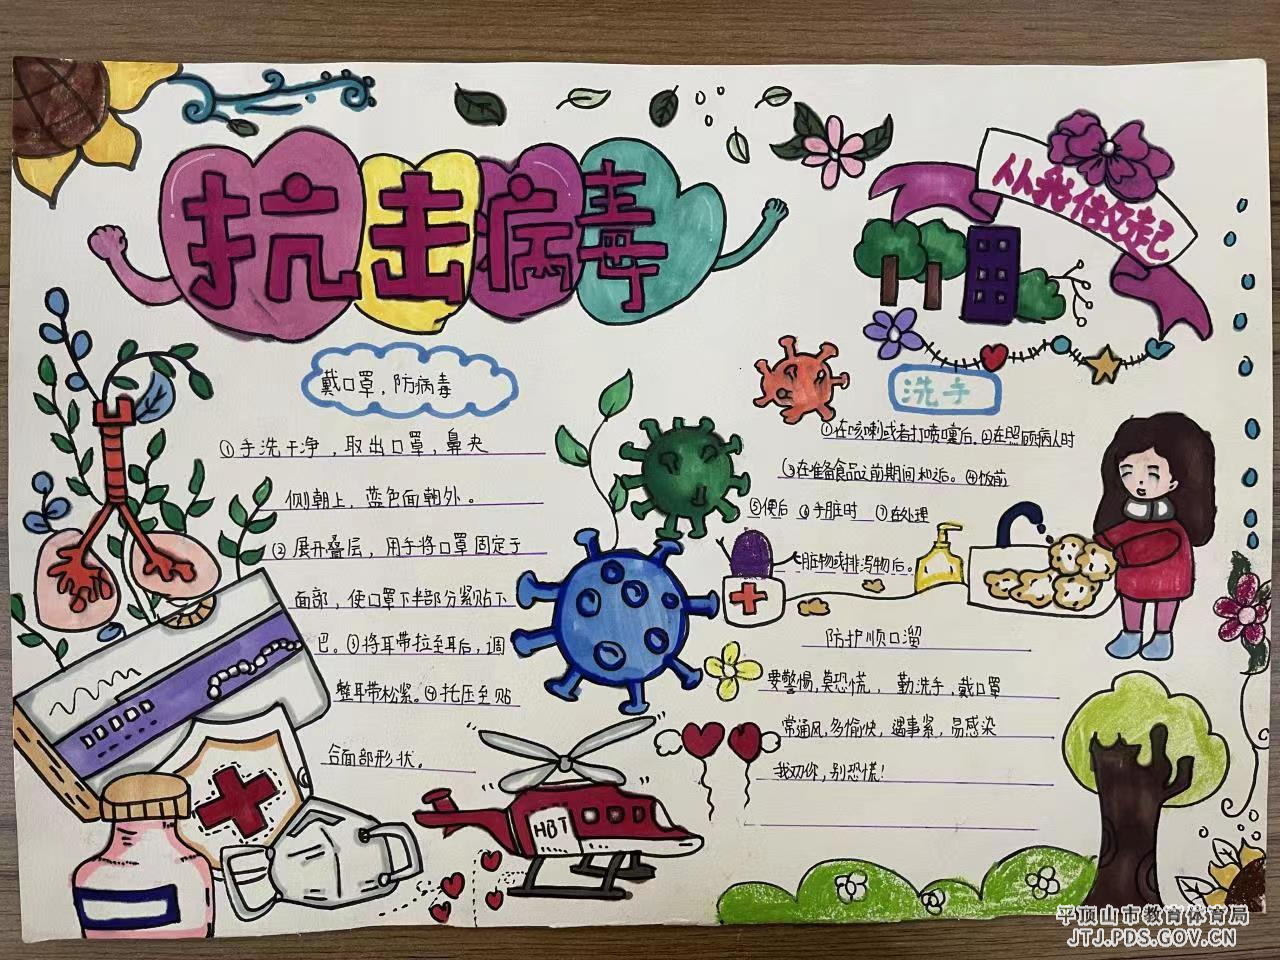 抗击病毒
从我做起
戴口罩，防病毒
①手洗干净，取出口罩，鼻夹
侧朝上，蓝色面朝外。
②展开叠层，用手将口罩固定于
面部，使口罩下半部分紧贴下
巴。③将耳带拉至耳后，调
整耳带松紧。④托压至贴
合面部形状。
洗手
①在咳嗽或者打喷嚏后.②在照顾病人时
③在准备食品之前期间和之后。④饭前
⑤便后 ⑥手脏时 ⑦在处理
脏物或排泻物后。
防护顺口溜
要警惕,莫恐慌，勤洗手,戴口罩
常通风,多愉快，遇事紧，易感染
我劝你，别恐慌！
HBT
平顶山市教育体育局
JTJ.PDS.GOV.CN